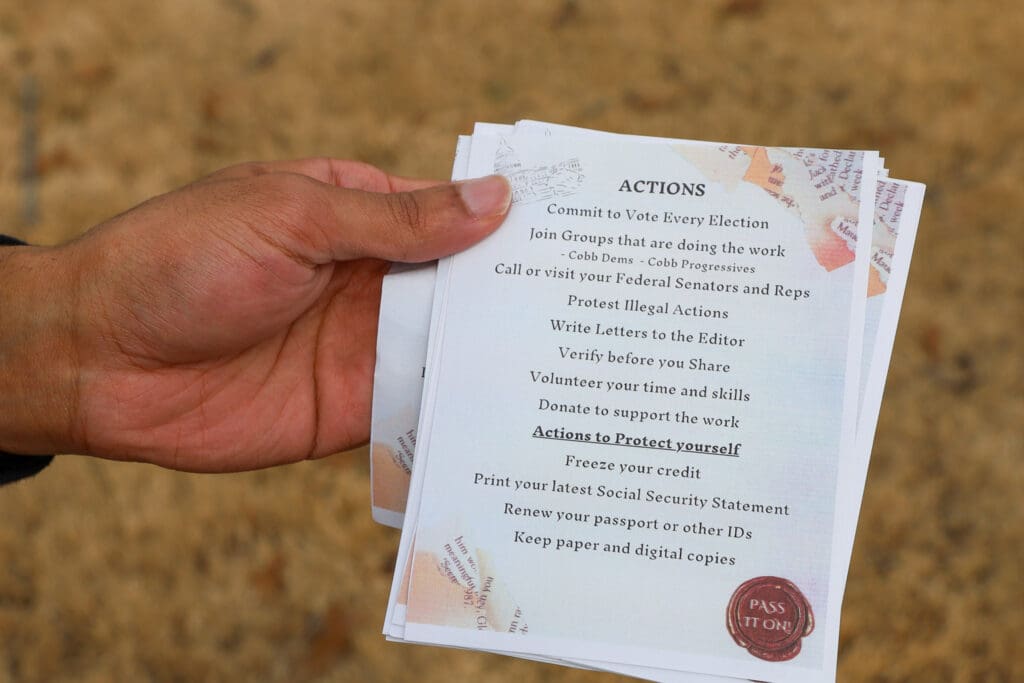 ACTIONS
Commit to Vote Every Election
Join Groups that are doing the work
- Cobb Dems - Cobb Progressives
Call or visit your Federal Senators and Reps
Protest Illegal Actions
Write Letters to the Editor
Verify before you Share
Volunteer your time and skills
Donate to support the work
Actions to Protect yourself
Freeze your credit
Print your latest Social Security Statement
Renew your passport or other IDs
Keep paper and digital copies
PASS
IT ON!
him wo
meaningful
1987.